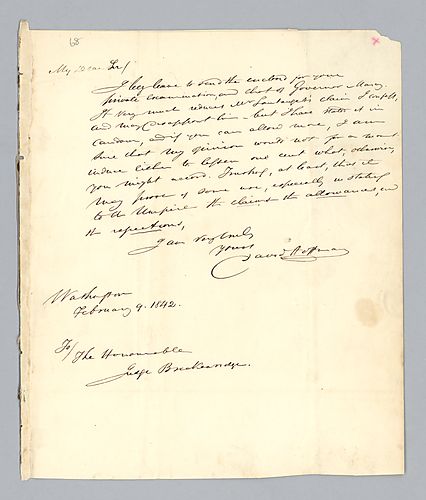 68
My Dear Sir/
I beg leave to send the enclosed for your
private examination, and that of Governor Marcy.
It very much reduces Mr Santangelo's claim I confess,
and may disappoint him — but I have stated it in
candour, and if you can allow more, I am
sure that my opinion would not for a moment
induce either to lessen one cent what, otherwise,
you might accord. Trusting, at least, that it
may prove of some use, especially in stating
to the Umpire the claims the allowances, and
the rejections,
I am very truly
yours
David Hoffman
Washington
February 9. 1842.
To/
The Honourable
Judge Breckenridge.